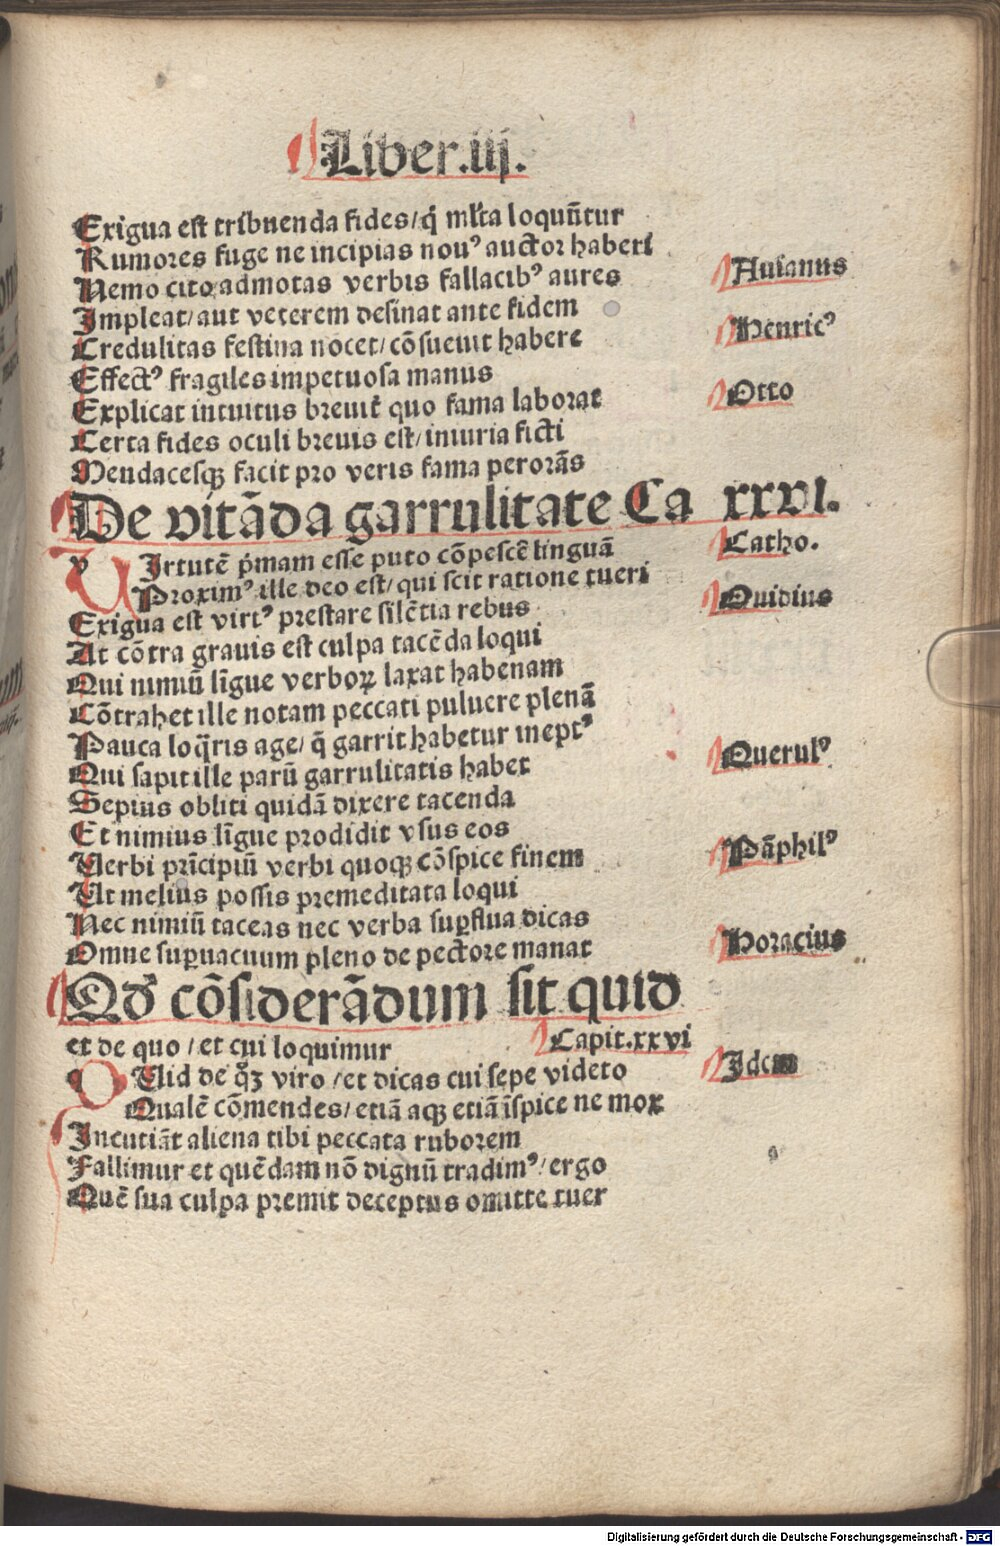 Liber.iij.
Exigua est tribuenda fides/q̇ ml'ta loquūtur
Rumores fuge ne incipias nou⁹ auctor haberi
Nemo cito admotas verbis fallacib⁹ aures
Auianus
Impleat/aut veterem desinat ante fidem
Credulitas festina nocet/cōsueuit habere
Henric⁹
Effect⁹ fragiles impetuosa manus
Explicat intuitus breuit̃ quo fama laborat
Otto
Certa fides oculi breuis est/iniuria ficti
Mendacesqꝫ facit pro veris fama perorās
De vitāda garrulitate Ca xxvi.
v Irtutē p̄mam esse puto cōpescē linguā
Catho.
Proxim⁹ ille deo est/qui scit ratione tueri
Exigua est virt⁹ prestare silētia rebus
Ouidius
At cōtra grauis est culpa tacēda loqui
Qui nimiū līgue verboꝝ laxat habenam
Cōtrahet ille notam peccati puluere plenā
Pauca loq̄ris age/q̇ garrit habetur inept⁹
Qui sapit ille parū garrulitatis habet
Querul⁹
Sepius obliti quidā dixere tacenda
Et nimius līgue prodidit vsus eos
Uerbi prīcipiū verbi quoqꝫ cōspice finem
Pāphil⁹
Ut melius possis premeditata loqui
Nec nimiū taceas nec verba suꝑflua dicas
Omne suꝑuacuum pleno de pectore manat
Horacius
Qđ cōsiderādum sit quid
et de quo/et cui loquimur Capit.xxvi
q Uid de q̊ꝫ viro/et dicas cui sepe videto
Idem
Qualē cōmendes/etiā aqꝫ etiā īspice ne mox
Incutiāt aliena tibi peccata ruborem
Fallimur et quēdam nō dignū tradim⁹/ergo
Quē sua culpa premit deceptus omitte tuer
Digitalisierung gefördert durch die Deutsche Forschungsgemeinschaft - DFG